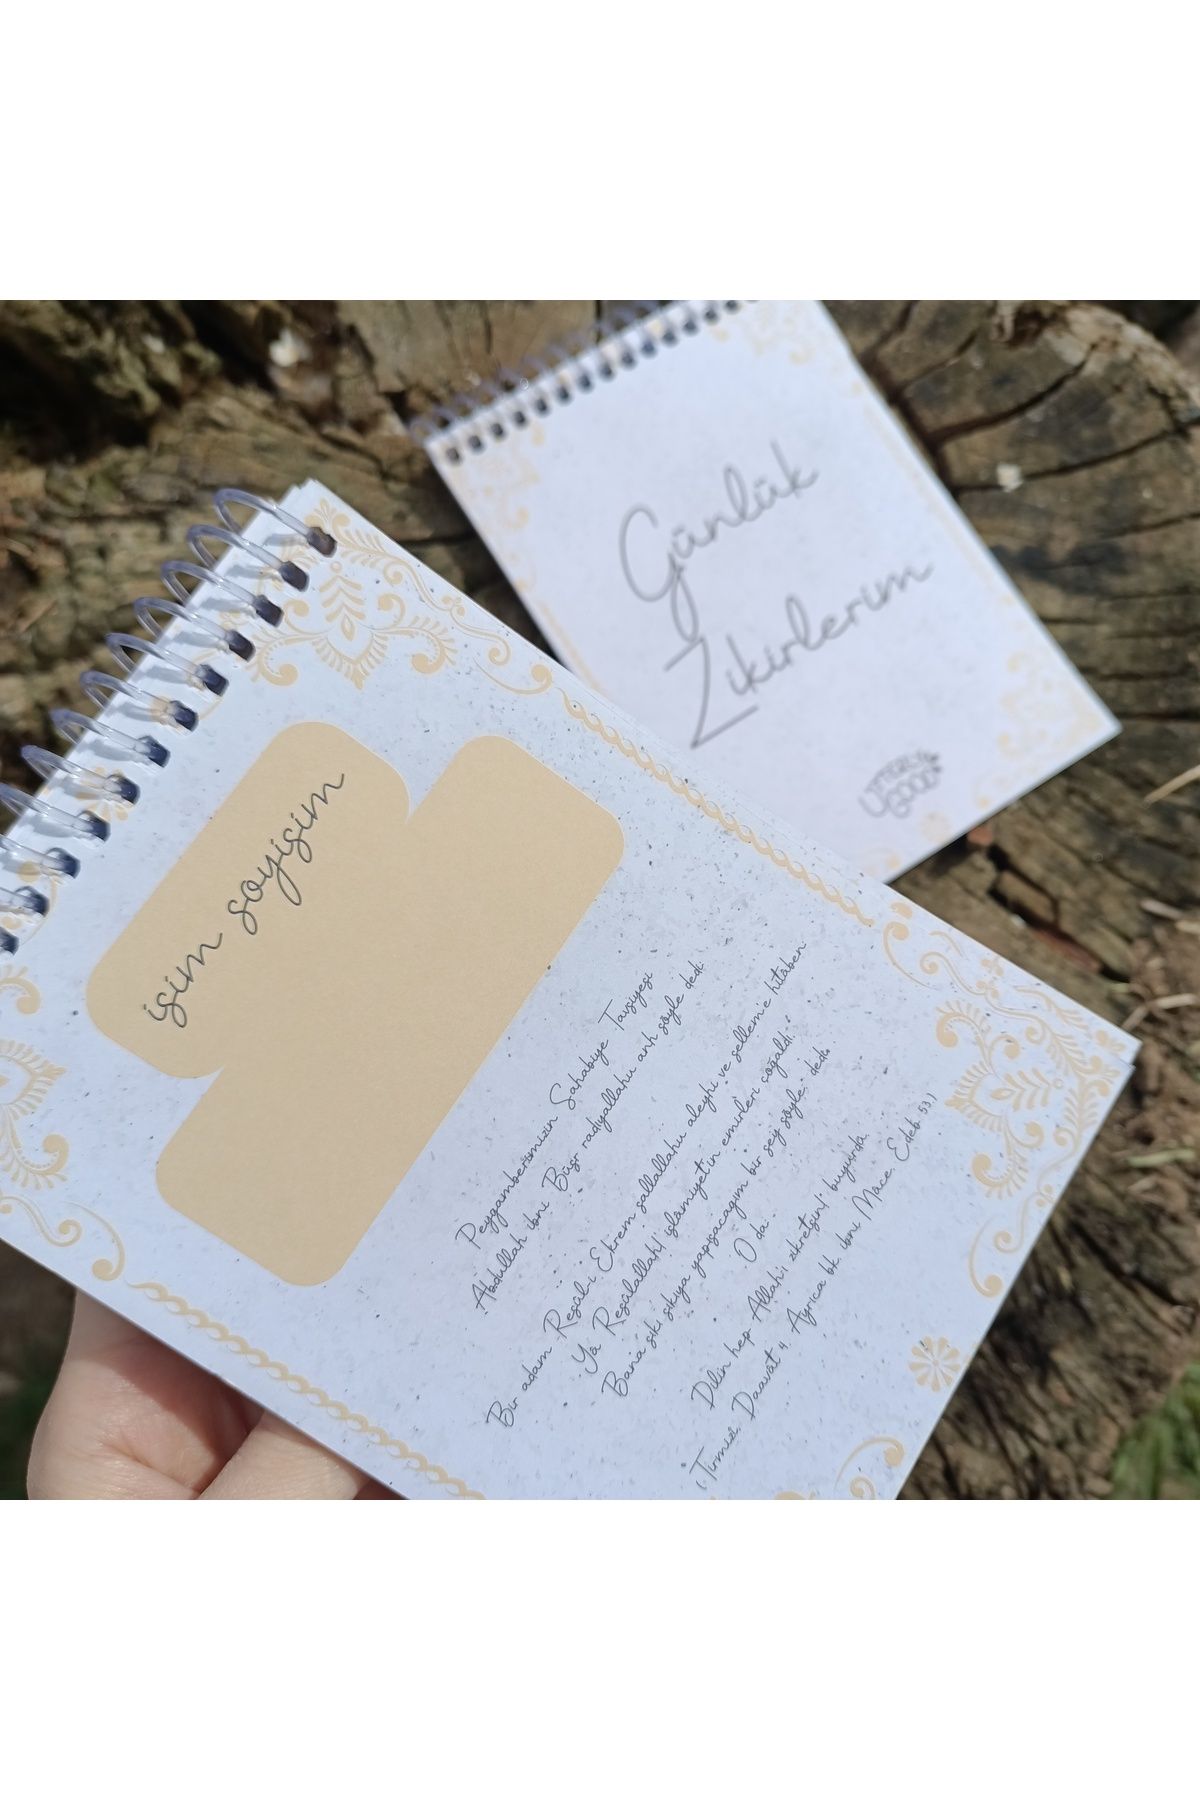 Günlük
Zikirlerim
UTTERLY
GOOD
isim soyisim
Peygamberimizin Sahabiye Tavsiyesi
Abdullah ibni Büsr radıyallahu anh şöyle dedi:
Bir adam Resûl-i Ekrem sallallahu aleyhi ve sellem'e hitâben
Yâ Resûlallah! İslâmiyet'in emirleri çoğaldı.
Bana sıkı sıkıya yapışacağım bir şey söyle, dedi.
O da
Dilin hep Allah'ı zikretsin! buyurdu.
(Tirmizî, Daavât 4. Ayrıca bk. İbni Mâce, Edeb 53.)